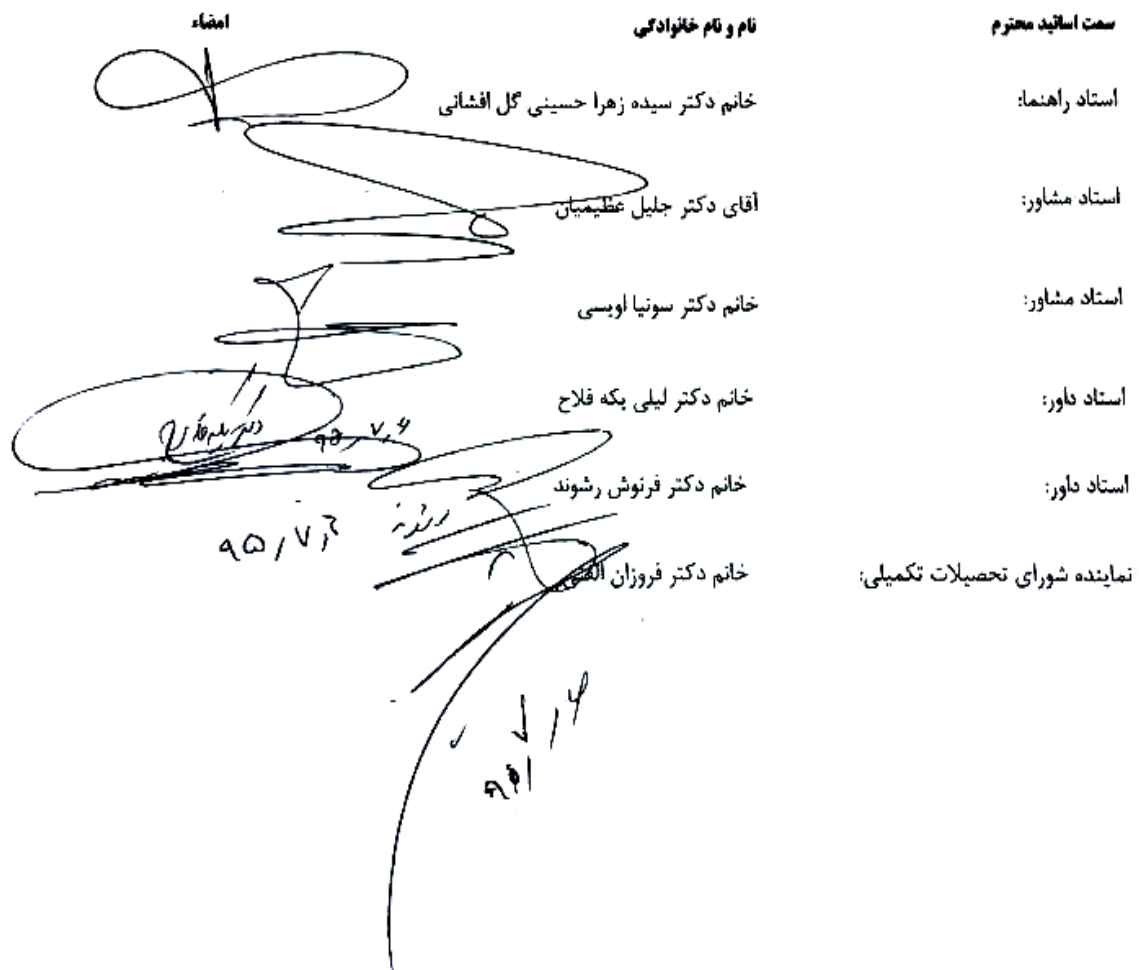 سمت اساتید محترم نام و نام خانوادگی امضاء
استاد راهنما: خانم دکتر سیده زهرا حسینی گل افشانی
استاد مشاور: آقای دکتر جلیل عظیمیان
استاد مشاور: خانم دکتر سونیا اویسی
استاد داور: خانم دکتر لیلی یکه فلاح
۹۵٫۷٫۶
استاد داور: خانم دکتر فرنوش رشوند
۹۵٫۷٫۶
نماینده شورای تحصیلات تکمیلی: خانم دکتر فروزان